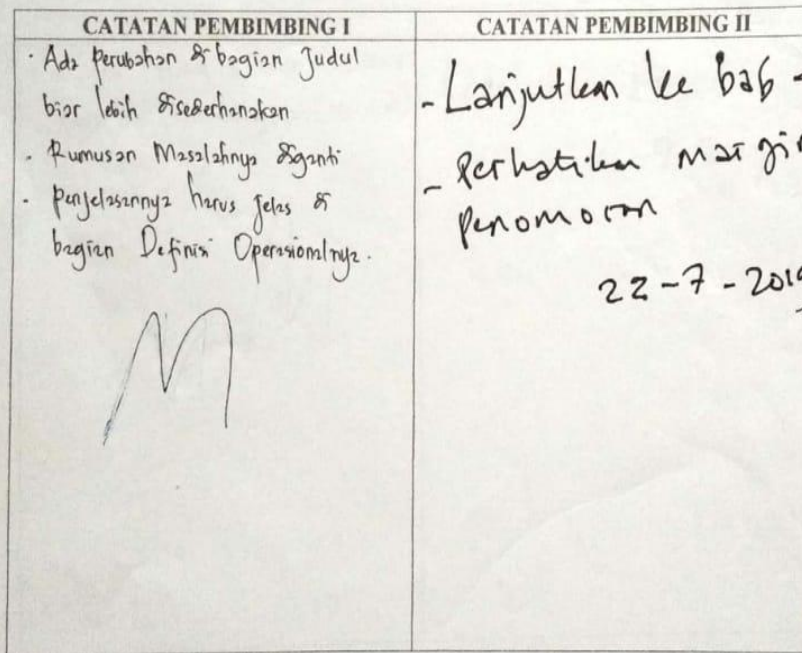 CATATAN PEMBIMBING I
· Ada perubahan di bagian Judul
biar lebih disederhanakan
· Rumusan Masalahnya diganti
· Penjelasannya harus jelas di
bagian Definisi Operasionalnya.
CATATAN PEMBIMBING II
- Lanjutkan ke bab -
- Perhatikan margin
penomoran
22-7-2019